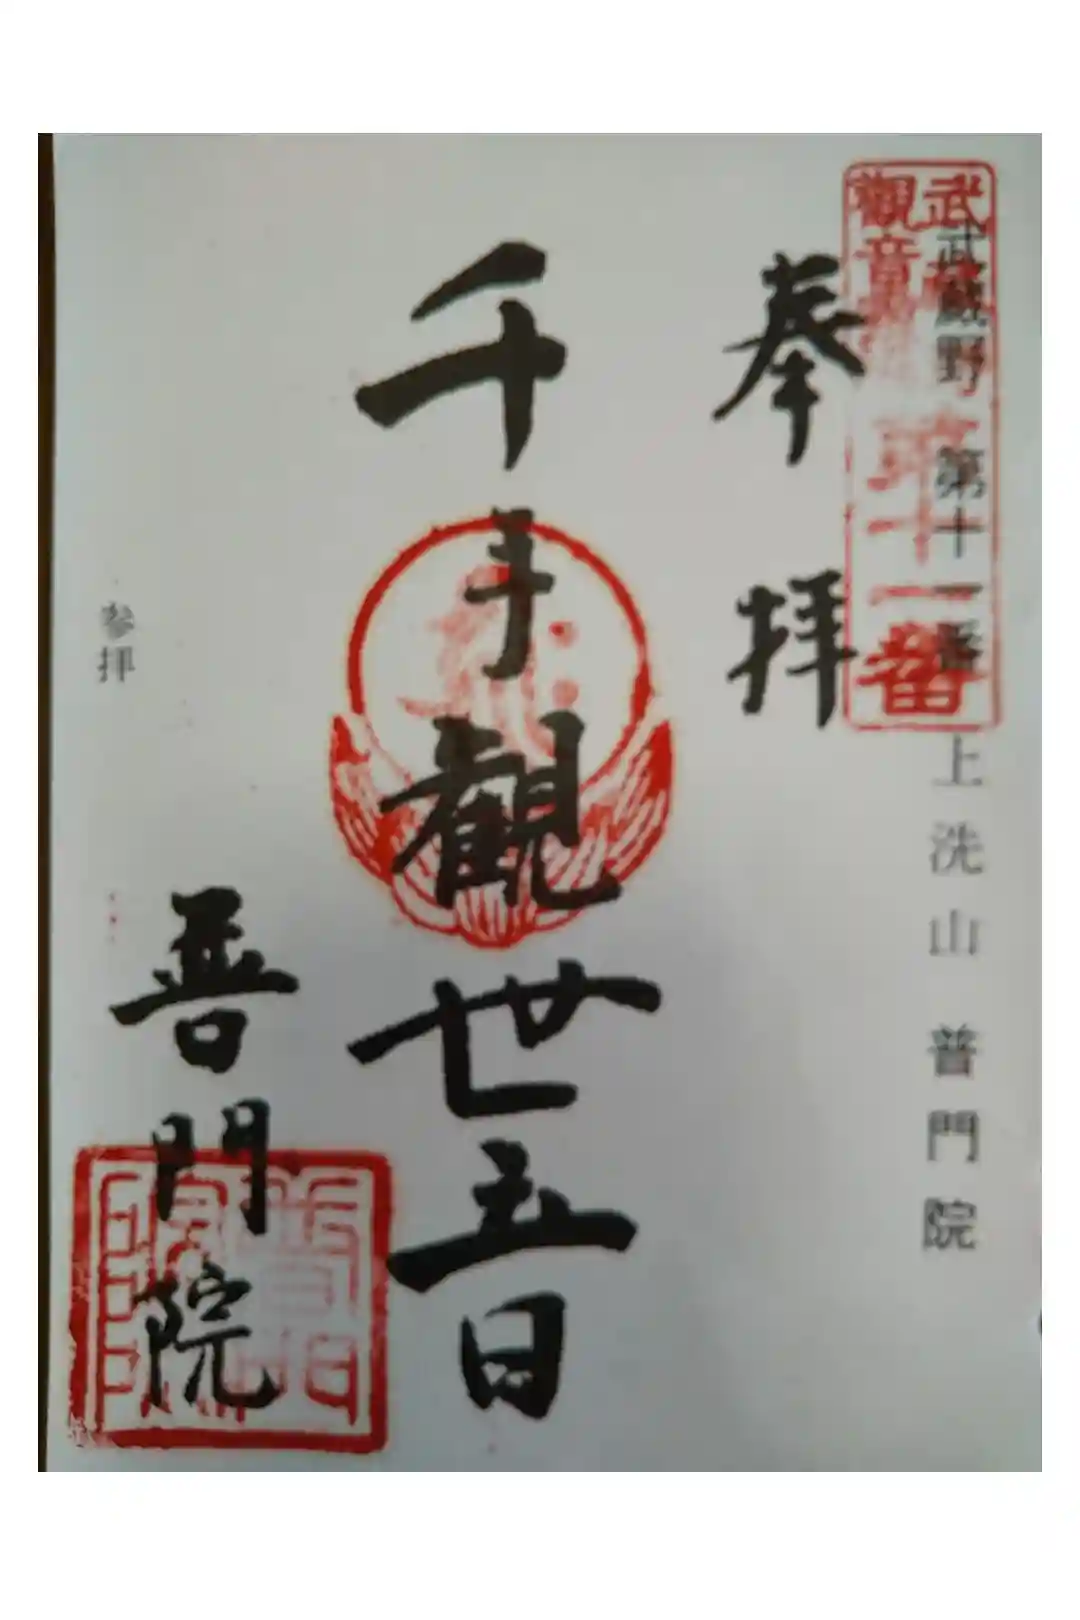 武蔵野 第十一番 上洗山 普門院
武
觀音
第十一番
奉拝
千手觀世音
普門院
参拝